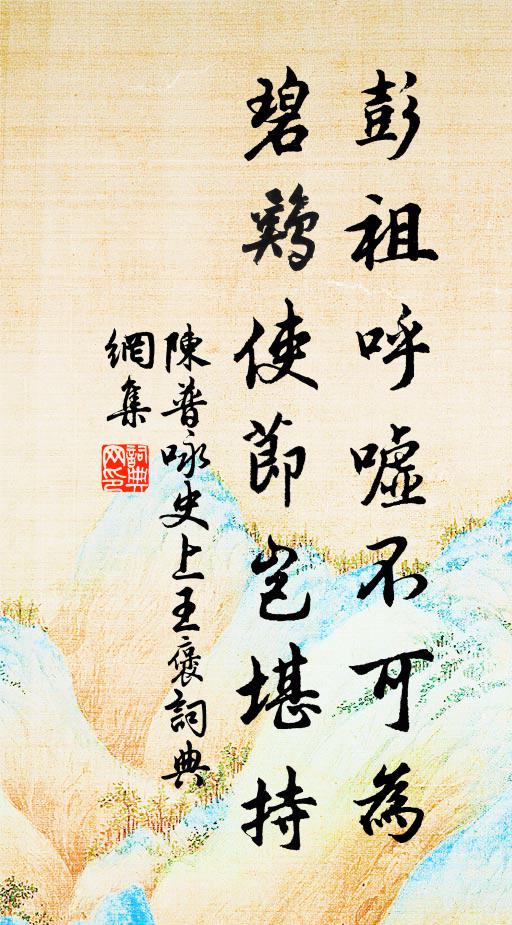 彭祖呼噓不可為
碧鷄使節岂堪持
陳普咏史上王褒詞典
網集
詞典
网印